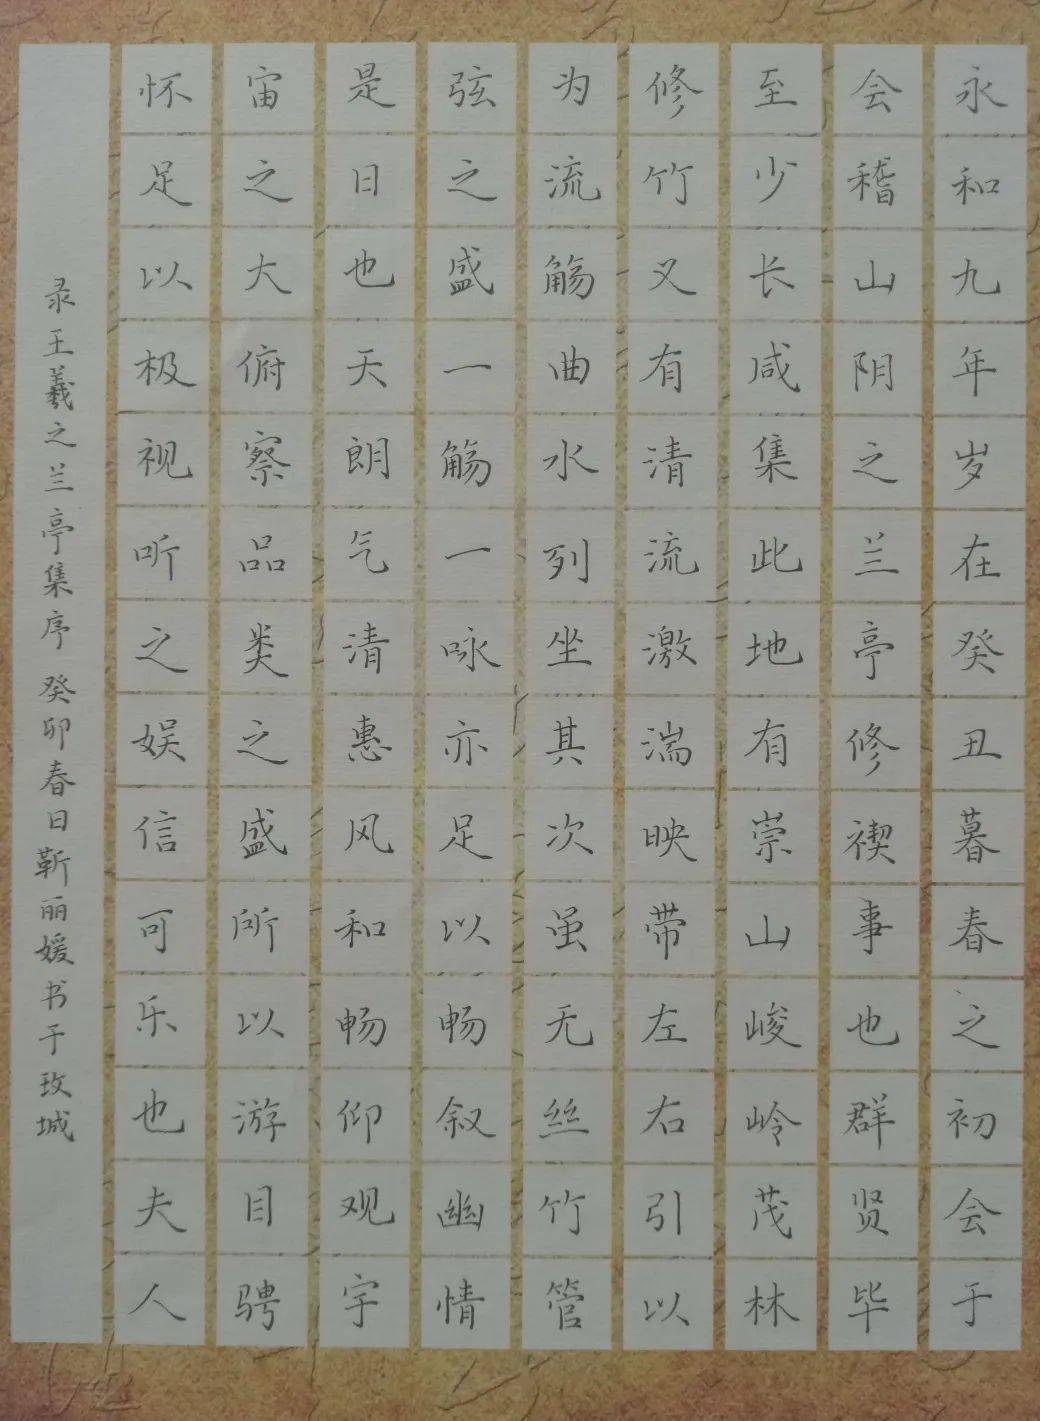 永和九年岁在癸丑暮春之初会于
会稽山阴之兰亭修禊事也群贤毕
至少长咸集此地有崇山峻岭茂林
修竹又有清流激湍映带左右引以
为流觞曲水列坐其次虽无丝竹管
弦之盛一觞一咏亦足以畅叙幽情
是日也天朗气清惠风和畅仰观宇
宙之大俯察品类之盛所以游目骋
怀足以极视听之娱信可乐也夫人
录王羲之兰亭集序癸卯春日靳丽媛书于玫城